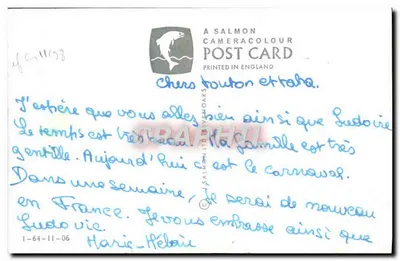 A SALMON
CAMERACOLOUR
POST CARD
PRINTED IN ENGLAND
Chers tonton et tata.
J'espère que vous allez bien ainsi que Ludovic
Le temps est très beau. Ma famille est très
gentille. Aujourd'hui c'est le carnaval.
Dans une semaine, je serai de nouveau
en France. Je vous embrasse ainsi que
Ludovic.
Marie-Hélène
1-64-11-06